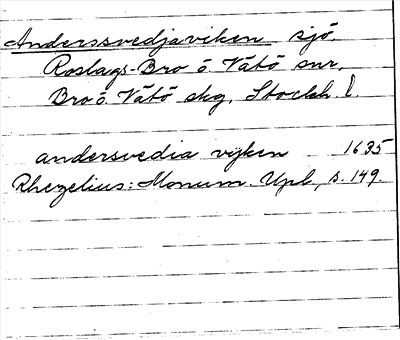 Anderssvedjaviken sjö.
Roslags-Bro o. Vätö snr,
Bro o. Vätö skg, Stockh. l.
andersvedia vijken 1635
Rhezelius: Monum. Upl., s. 149.